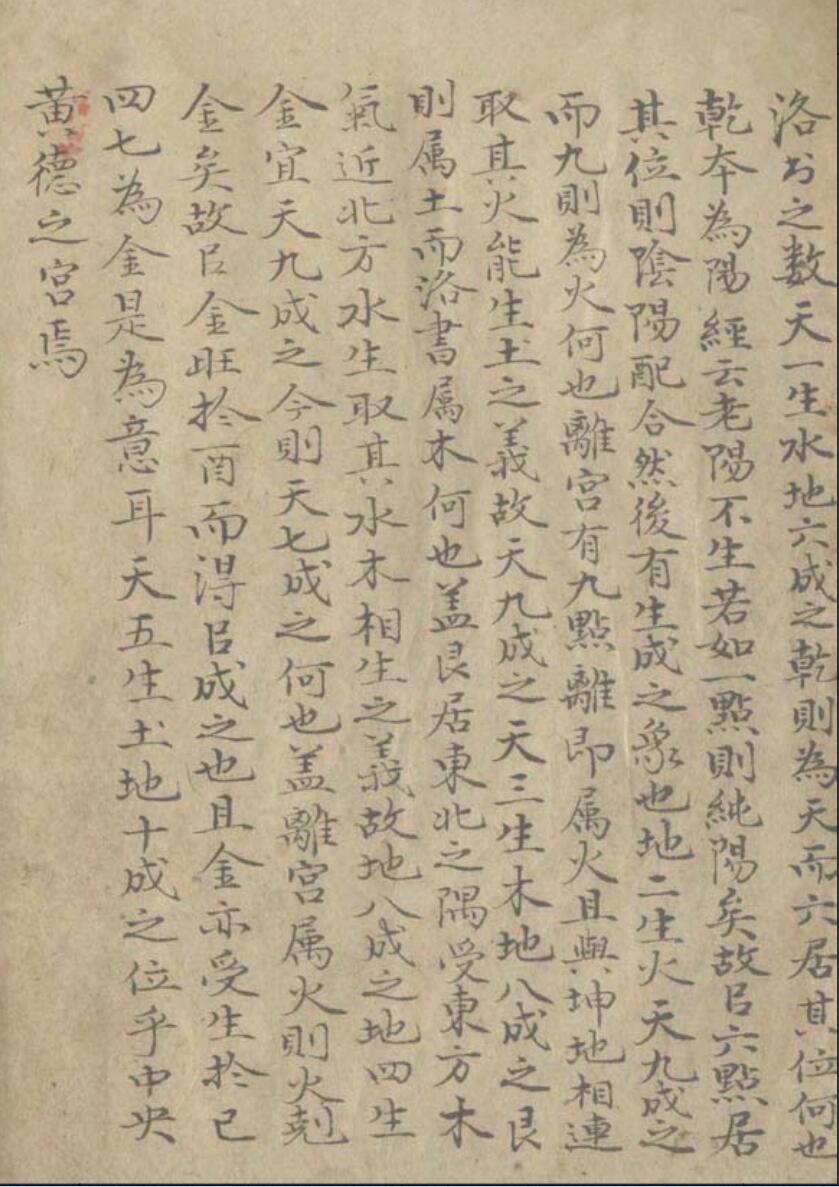 洛书之数天一生水地六成之乾則為天而六居其位何也
乾本為陽經云老陽不生若如一點則純陽矣故㠯六點居
其位則陰陽配合然後有生成之象也地二生火天九成之
而九則為火何也離宮有九點離即属火且與坤地相連
取其火能生土之義故天九成之天三生木地八成之艮
則属土而洛書属木何也盖艮居東北之隅受東方木
氣近北方水生取其水木相生之義故地八成之地四生
金宜天九成之今則天七成之何也盖離宮属火則火剋
金矣故㠯金旺於酉而得㠯成之也且金亦受生於巳
四七為金是為意耳天五生土地十成之位乎中央
黃德之宮焉